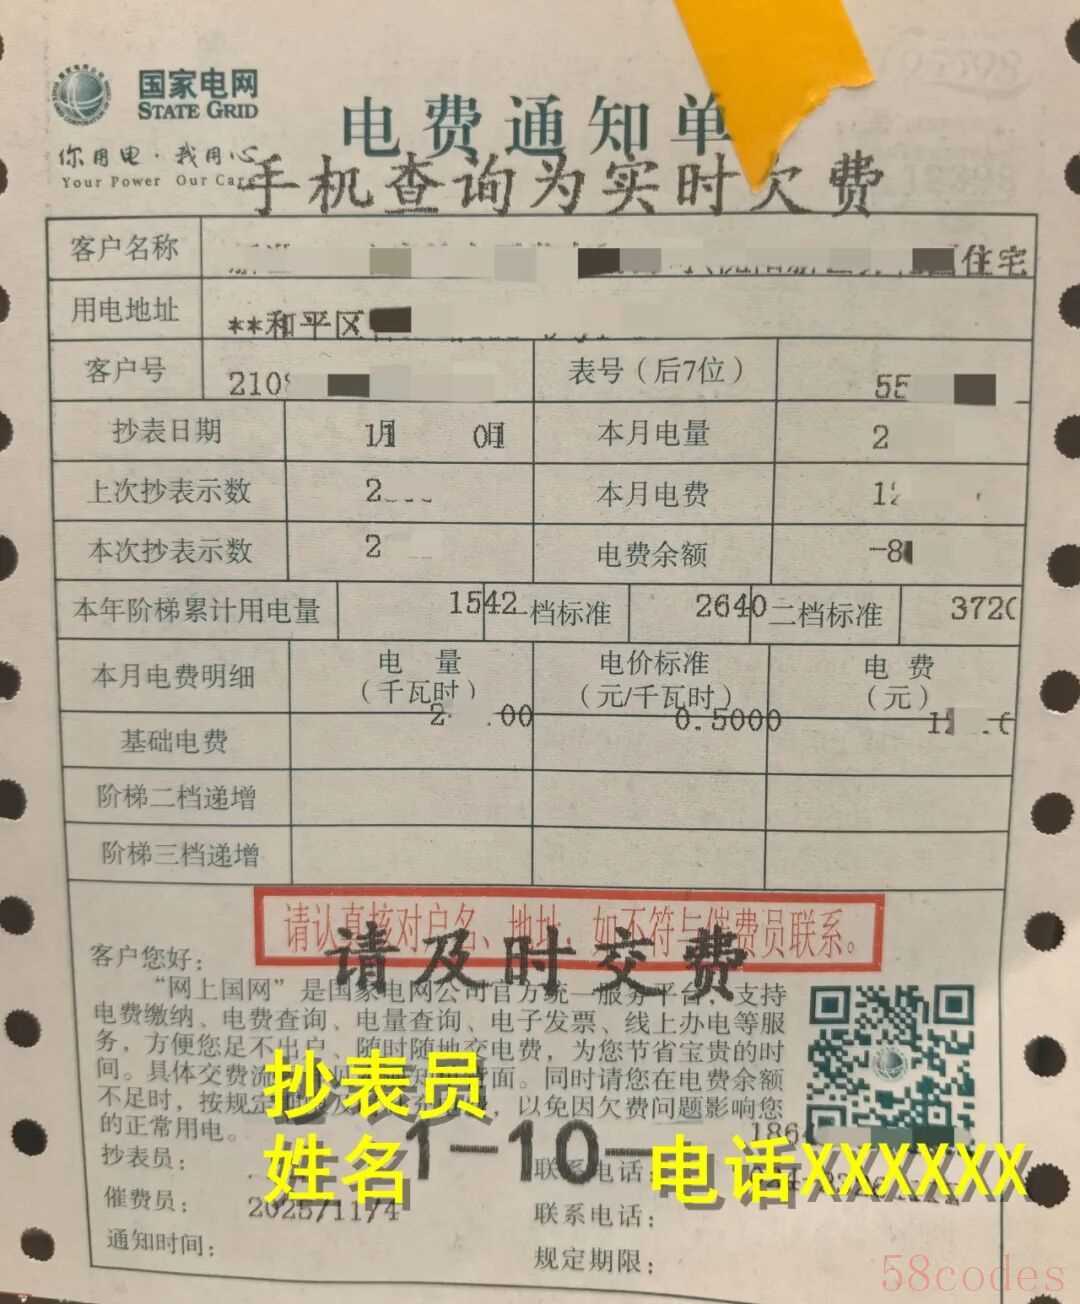 国家电网
STATE GRID
你用电·我用心
Your Power Our Care
电费通知单
手机查询为实时欠费
客户名称 住宅
用电地址 **和平区
客户号 210 表号（后7位） 55
抄表日期 11月 01日 本月电量 2
上次抄表示数 2 本月电费 12
本次抄表示数 2 电费余额 -8
本年阶梯累计用电量 1542 一档标准 2640 二档标准 3720
本月电费明细 电量（千瓦时） 电价标准（元/千瓦时） 电费（元）
基础电费 2 .00 0.5000 1
阶梯二档递增
阶梯三档递增
请认真核对户名、地址，如不符与催费员联系。
请及时交费
客户您好：
“网上国网”是国家电网公司官方统一服务平台，支持
电费缴纳、电费查询、电量查询、电子发票、线上办电等服
务，方便您足不出户、随时随地交电费，为您节省宝贵的时
间。具体交费流 面。同时请您在电费余额
不足时，按规定 费，以免因欠费问题影响您
的正常用电。
抄表员
姓名
1-10-
电话XXXXXX
186
抄表员： 联系电话：
催费员： 2025/11/4 联系电话：
通知时间： 规定期限：
58codes